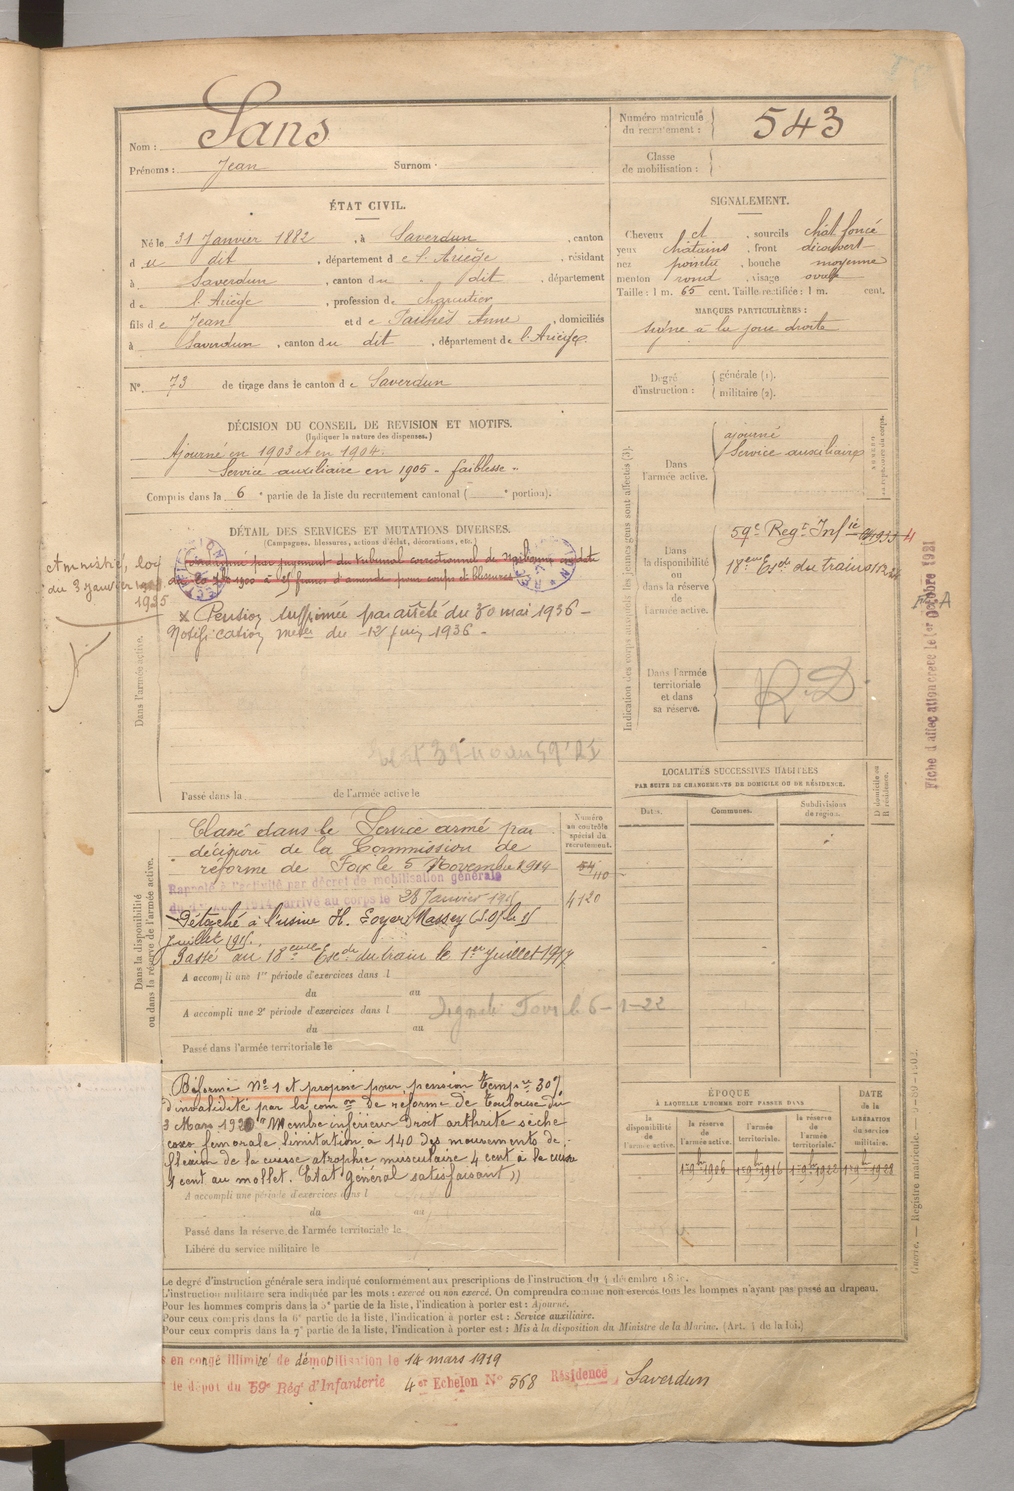 Nom : Sans
Prénoms : Jean Surnom
Numéro matricule du recrutement : 543
Classe de mobilisation :
ÉTAT CIVIL.
Né le 31 Janvier 1882, à Saverdun, canton
du dit, département de l'Ariège, résidant
à Saverdun, canton du dit, département
de l'Ariège, profession de charcutier
fils de Jean et de Pailhès Anne, domiciliés
à Saverdun, canton du dit, département de l'Ariège.
SIGNALEMENT.
Cheveux et, sourcils chat. foncé
yeux chatains, front découvert
nez pointu, bouche moyenne
menton rond, visage ovale
Taille : 1 m. 65 cent. Taille rectifiée : 1 m. cent.
MARQUES PARTICULIÈRES :
signe à la joue droite
N° 73 de tirage dans le canton de Saverdun
Degré d'instruction : générale (1). militaire (2).
DÉCISION DU CONSEIL DE REVISION ET MOTIFS.
(Indiquer la nature des dispenses.)
Ajourné en 1903 et en 1904.
Service auxiliaire en 1905 - faiblesse -
Compris dans la 6e partie de la liste du recrutement cantonal ( e portion).
Indication des corps auxquels les jeunes gens sont affectés (3).
Dans l'armée active.
ajourné
Service auxiliaire
Dans la disponibilité ou dans la réserve de l'armée active.
59e Regt Infie
18eme Esde du train
Dans l'armée territoriale et dans sa réserve.
R.D
Fiche d'affectation créée le 1er Octobre 1931
DÉTAIL DES SERVICES ET MUTATIONS DIVERSES.
(Campagnes, blessures, actions d'éclat, décorations, etc.)
Amnistié, loi
du 3 janvier
1925
Condamné par jugement du tribunal correctionnel de
à 25 francs d'amende pour coups et blessures
x Pension supprimée par arrêté du 30 mai 1936 -
Notification du 12 juin 1936 -
Dans l'armée active.
Passé dans la de l'armée active le
LOCALITÉS SUCCESSIVES HABITÉES
PAR SUITE DE CHANGEMENTS DE DOMICILE OU DE RÉSIDENCE.
Dates. Communes. Subdivisions de région. D domicile ou R résidence.
Dans la disponibilité ou dans la réserve de l'armée active.
Numéro au contrôle spécial du recrutement.
Classé dans le Service armé par
décision de la Commission de
réforme de Foix le 5 Novembre 1914
Rappelé à l'activité par décret de mobilisation générale
arrivé au corps le 28 Janvier 191
4120
Détaché à l'usine H. Soyer Massey (S.O) le 1
Juillet 191.
Passé au 18eme Esde du train le 1er Juillet 1917
A accompli une 1re période d'exercices dans l
du au
A accompli une 2e période d'exercices dans l
du au
le 6-1-22
Passé dans l'armée territoriale le
Réformé N° 1 et proposé pour pension tempre 30%
d'invalidité par la comon de réforme de Toulouse du
3 Mars 192 "Membre inférieur droit arthrite sèche
coxo fémorale limitation à 140 des mouvements de
flexion de la cuisse atrophie musculaire 4 cent à la cuisse
1 cent au mollet. Etat général satisfaisant"
A accompli une période d'exercices dans l
du au
Passé dans la réserve de l'armée territoriale le
Libéré du service militaire le
ÉPOQUE
À LAQUELLE L'HOMME DOIT PASSER DANS
la disponibilité de l'armée active. la réserve de l'armée active. l'armée territoriale. la réserve de l'armée territoriale. DATE de la LIBÉRATION du service militaire.
1er 9bre 1906 1er 9bre 1916
Le degré d'instruction générale sera indiqué conformément aux prescriptions de l'instruction du 4 décembre 18
L'instruction militaire sera indiquée par les mots : exercé ou non exercé. On comprendra comme non exercés tous les hommes n'ayant pas passé au drapeau.
Pour les hommes compris dans la 5e partie de la liste, l'indication à porter est : Ajourné.
Pour ceux compris dans la 6e partie de la liste, l'indication à porter est : Service auxiliaire.
Pour ceux compris dans la 7e partie de la liste, l'indication à porter est : Mis à la disposition du Ministre de la Marine. (Art. 4 de la loi.)
en congé illimité de démobilisation le 14 mars 1919
le dépôt du 59e Rég d'Infanterie 4er Echelon N° 568 Résidence Saverdun